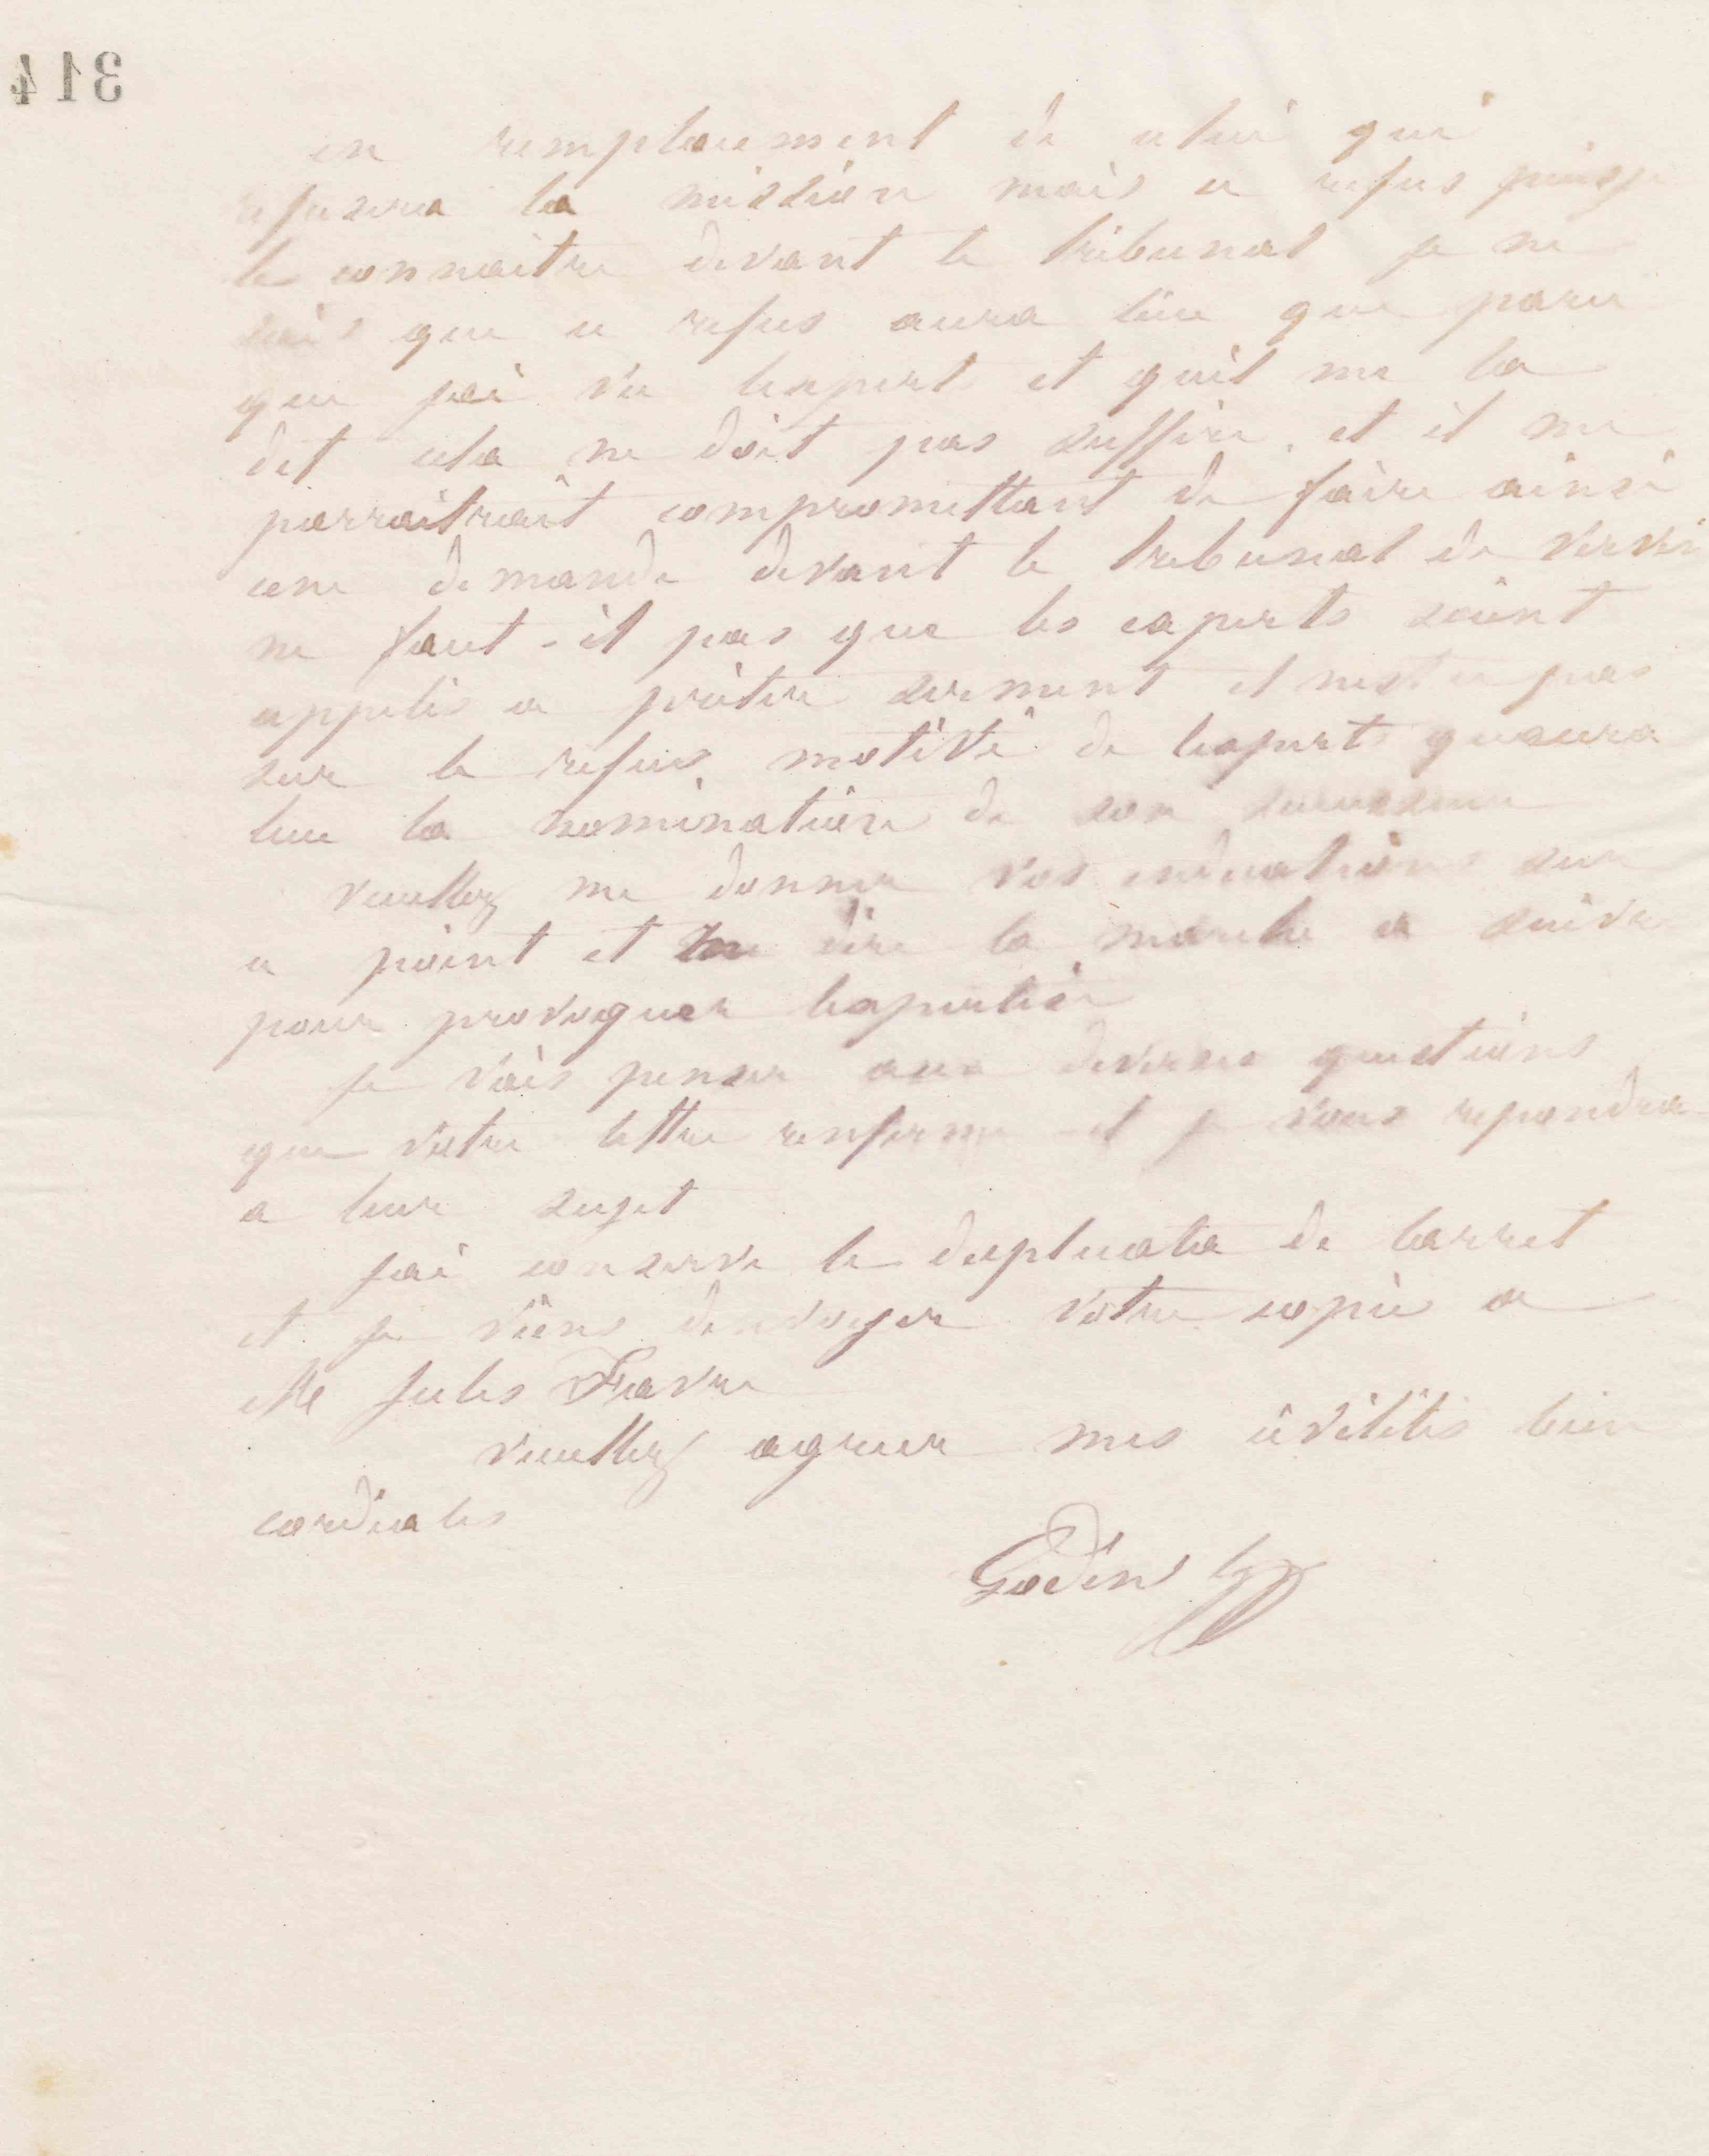 314
en remplacement de celui qui
refusera la mission mais ce refus puisje
le connaitre devant le tribunal je ne
sais que ce refus aura lieu que parce
que jai vu lexpert et quil me la
dit cela ne doit pas suffire, et il me
parraitrait compromettant de faire ainsi
une demande devant le tribunal de Vervi
ne faut-il pas que les experts soient
appelés a prêter serment et nest ce pas
sur le refus motivé de lexpert quaura
lieu la nomination de son successeur
veuillez me donner vos indications sur
ce point et me dire la marche a suivre
pour provoquer lexpertise
je vais penser aux diverses questions
que votre lettre renferme et je vous repondrai
a leur sujet
jai conservé le duplicata de larret
et je viens denvoyer votre copie a
Me Jules Favre
veuillez agreer mes civilités bien
cordiales
Godin